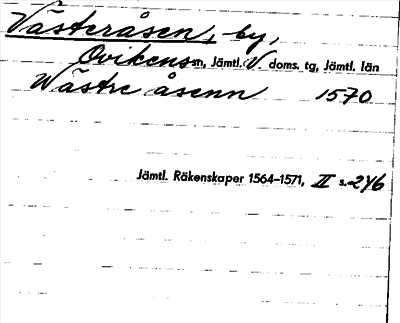 Västeråsen, by,
Ovikens sn, Jämtl. V doms. tg, Jämtl. län
Wästre åsenn 1570
Jämtl. Räkenskaper 1564–1571, II s. 246